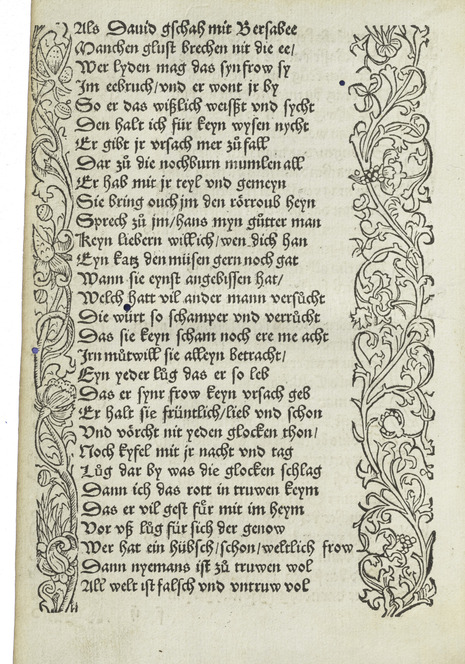 Als Dauid gschah mit Bersabee
Manchen glust brechen nit die ee/
Wer lyden mag das syn frow sy
Im eebruch/vnd er wont jr by
So er das wißlich weißt vnd sycht
Den halt ich für keyn wysen nycht
Er gibt jr vrsach mer zů fall
Dar zů die nochburn mumlen all
Er hab mit jr teyl vnd gemeyn
Sie bring ouch jm den rörroub heyn
Sprech zů jm/hans myn gůtter man
Keyn liebern will ich/wen dich han
Eyn katz den müsen gern noch gat
Wann sie eynst angebissen hat/
Welch hatt vil ander mann versůcht
Die würt so schamper vnd verrůcht
Das sie keyn scham noch ere me acht
Irn můtwill sie alleyn betracht/
Eyn yeder lůg das er so leb
Das er synr frow keyn vrsach geb
Er halt sie früntlich/lieb vnd schon
Vnd vörcht nit yeden glocken thon/
Noch kyfel mit jr nacht vnd tag
Lůg dar by was die glocken schlag
Dann ich das rott in truwen keym
Das er vil gest fůr mit im heym
Vor vß lůg für sich der genow
Wer hat ein hübsch/schon/weltlich frow
Dann nyemans ist zů truwen wol
All welt ist falsch vnd vntruw vol